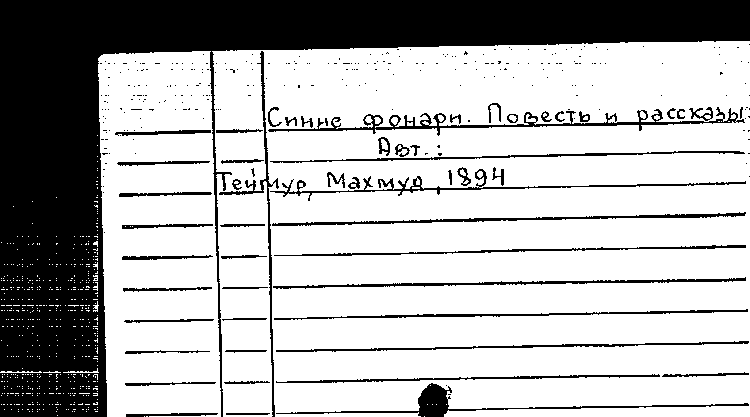 Синие фонари. Повесть и рассказы
Авт.:
Теймур, Махмуд, 1894